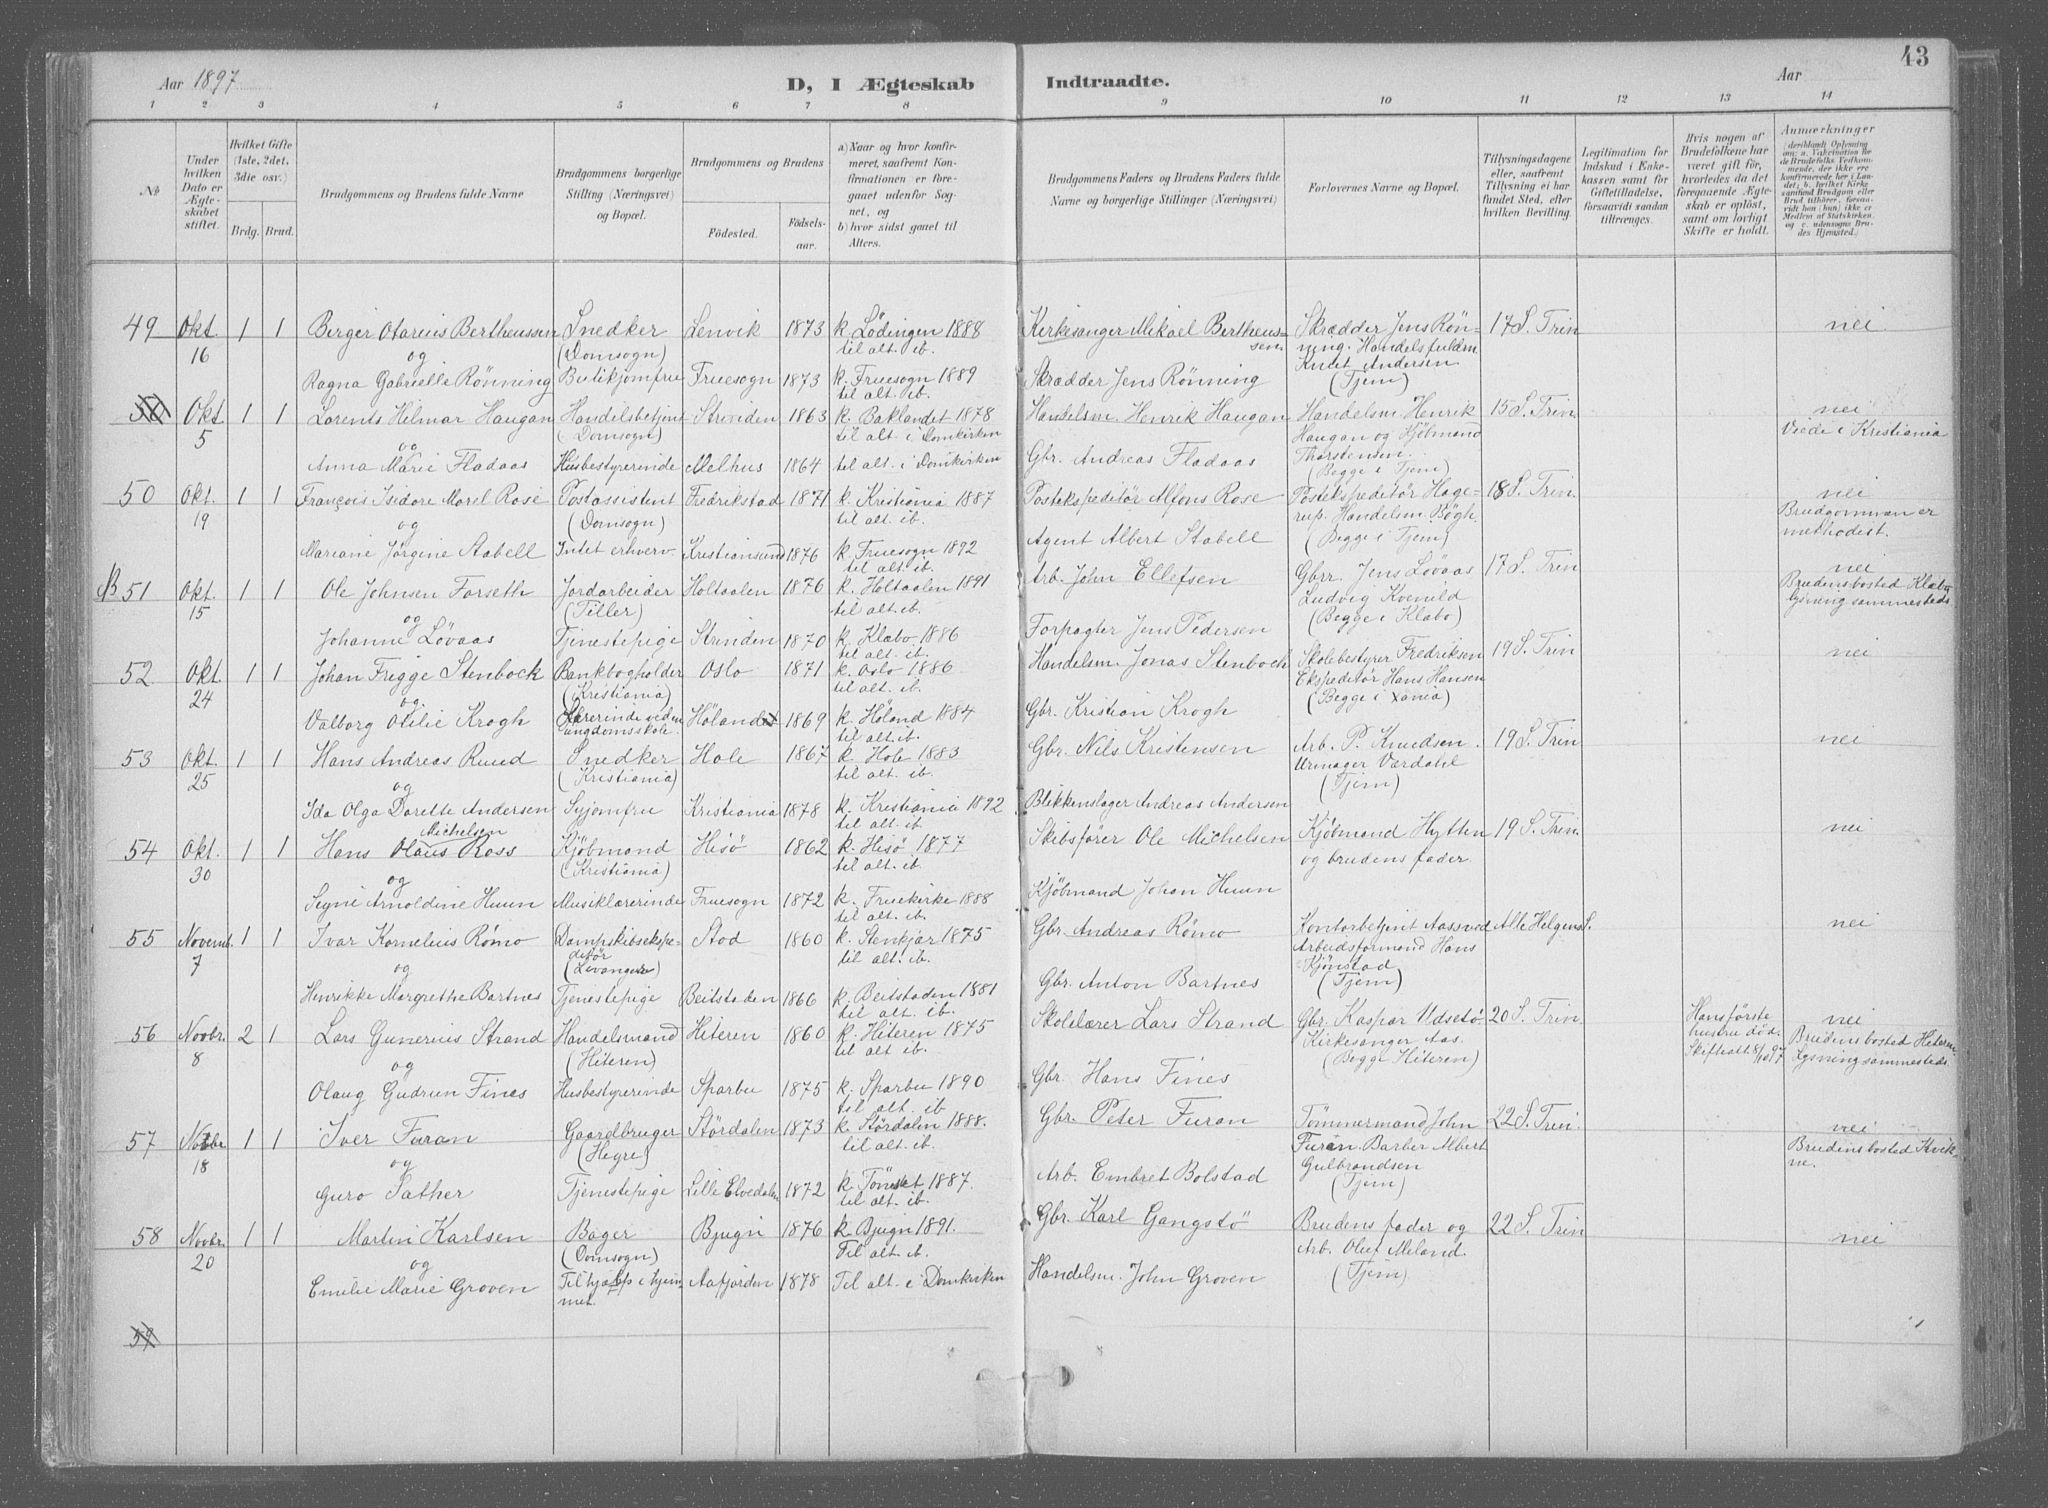 Aar 1897
D, I Ægteskab Indtraadte.
Aar
43
1 2 3 4 5 6 7 8 9 10 11 12 13 14
No
Under hvilken Dato er Ægteskabet stiftet.
Hvilket Gifte (1ste, 2det, 3die osv.)
Brdg. Brud.
Brudgommens og Brudens fulde Navne
Brudgommens borgerlige Stilling (Næringsvei) og Bopæl.
Brudgommens og Brudens
Fødested. Fødselsaar.
a) Naar og hvor konfirmeret, saafremt Konfirmationen er foregaaet udenfor Sognet, og
b) hvor sidst gaaet til Alters.
Brudgommens Faders og Brudens Faders fulde Navne og borgerlige Stillinger (Næringsvei)
Forlovernes Navne og Bopæl.
Tillysningsdagene eller, saafremt Tillysning ei har fundet Sted, efter hvilken Bevilling.
Legitimation for Indskud i Enkekassen samt for Giftetilladelse, forsaavidt saadan tiltrænges.
Hvis nogen af Brudefolkene har været gift før, hvorledes da det foregaaende Ægteskab er opløst, samt om lovligt Skifte er holdt.
Anmærkninger (deriblandt Oplysning om: a. Vakcination for de Brudefolks Vedkommende, der ikke ere konfirmerede her i Landet; b. hvilket Kirkesamfund Brudgom eller Brud tilhører, forsaavidt han (hun) ikke er Medlem af Statskirken, og c. udensogns Brudes Hjemsted.)
49 Okt. 16 1 1 Berger Otarius Bertheussen Snedker (Domsogn) Lenvik 1873 k. Lödingen 1888 til alt. ib. Kirkesanger Mikael Bertheussen Skrædder Jens Rönning. Handelsfuldm. Knut Andersen (Tjem) 17 S. Trin nei
og
Ragna Gabrielle Rönning Butikjomfru Fruesogn 1873 k. Fruesogn 1889 til alt. ib. Skrædder Jens Rönning
50 Okt 5 1 1 Lorents Hilmar Haugan Handelsbetjint (Domsogn) Strinden 1863 k. Baklandet 1878 til alt. i Domkirken Handelsm. Henrik Haugan Handelsm Henrik Haugan og Kjöbmand Thorstensen. (Begge i Tjem) 15 S. Trin nei Viede i Kristiania
og
Anna Marie Fladaas Husbestyrerinde Melhus 1864 til alt. i Domkirken Gbr. Andreas Fladaas
50 Okt. 19 1 1 François Isidore Morel Rosé Postassistent (Domsogn) Fredrikstad 1871 k. Kristiania 1887 til alt. ib. Postekspeditör Alfons Rose Postekspeditör Hagerup. Handelsm. Bögh (Begge i Tjem) 18 S. Trin. nei Brudgommen er methodist.
og
Mariane Jörgine Stabell Intet erhverv Kristiansund 1876 k. Fruesogn 1892 til alt. ib. Agent Albert Stabell
51 Okt. 15 1 1 Ole Johnsen Forseth Jordarbeider (Tiller) Holtaalen 1876 k. Holtaalen 1891 til alt. ib. Arb. John Ellefsen Gbrr. Jens Lövaas Ludvig Kvenild (Begge i Klæbo) 17 S. Trin nei Brudens bosted Klæbo lysning sammesteds
og
Johanne Lövaas Tjenestepige Strinden 1870 k. Klæbo 1886 til alt. ib. Forpagter Jens Pedersen
52 Okt. 24 1 1 Johan Frigge Stenbock Bankbogholder (Kristiania) Oslo 1871 k. Oslo 1886 til alt. ib. Handelsm. Jonas Stenbock Skolebestyrer Fredriksen Ekspeditör Hans Hansen (Begge i Xania) 19 S. Trin nei
og
Valborg Otilie Krogh Lærerinde ved en ungdomsskole. Höland 1869 k. Höland 1884 til alt. ib. Gbr. Kristian Krogh
53 Okt. 25 1 1 Hans Andreas Ruud Snedker (Kristiania) Hole 1867 k. Hole 1883 til alt. ib. Gbr. Nils Kristensen Arb. P. Knudsen. Urmager Værdahl (Tjem) 19 S. Trin nei
og
Ida Olga Dorette Andersen Syjomfru Kristiania 1878 k. Kristiania 1892 til alt. ib. Blikkenslager Andreas Andersen
54 Okt. 30 1 1 Hans Olaus Michelsen Ross Kjöbmand (Kristiania) Hisö 1862 k. Hisö 1877 til alt. ib. Skibsförer Ole Michelsen Kjöbmand Hytten og brudens fader. 19 S. Trin. nei
og
Signe Arnoldine Huun Musiklærerinde Fruesogn 1872 k. Fruekirke 1888 til alt. ib. Kjöbmand Johan Huun
55 Novemb. 7 1 1 Ivar Kornelius Römo Dampskibsekspeditör (Levanger) Stod 1860 k. Stenkjær 1875 til alt. ib. Gbr. Andreas Römo Kontorbetjint Aassved Arbeidsformand Hans Kjönstad (Tjem) Alle Helgens S. nei
og
Henrikke Margrethe Bartnes Tjenestepige Beitstaden 1866 k. Beitstaden 1881 til alt. ib. Gbr. Anton Bartnes
56 Novbr. 8 2 1 Lars Gunerius Strand Handelsmand (Hiteren) Hiteren 1860 k. Hiteren 1875 til alt. ib. Skolelærer Lars Strand Gbr. Kaspar Udsetö. Kirkesanger Aas. (Begge Hiteren) 20 S. Trin Hans förste hustru död. Skifteatt 8/10 97 nei Brudens bosted Hiteren. Lysning sammesteds.
og
Olaug Gudrun Fines Husbestyrerinde Sparbu 1875 k. Sparbu 1890 til alt. ib Gbr. Hans Fines
57 Novbr 18 1 1 Iver Furan Gaardbruger (Hegre) Stördalen 1873 k. Stördalen 1888. til alt. ib. Gbr. Peter Furan Tömmermand John Furan Barber Albert Gulbrandsen (Tjem) 22 S. Trin. nei Brudens bosted Kvikne.
og
Guro Sather Tjenestepige Lille Elvedalen 1872 k. Tönset 1887. til alt. ib. Arb. Embret Bolstad
58 Novbr. 20 1 1 Martin Karlsen Bager (Domsogn) Bjugn 1876 k. Bjugn 1891. Til alt. ib. Gbr. Karl Gangstö Brudens fader og Arb. Oluf Meland. (Tjem) 22 S. Trin nei
og
Emilie Marie Groven Til hjælp i hjemmet. Aafjorden 1878 Til alt. i Domkirken Handelsm. John Groven
59